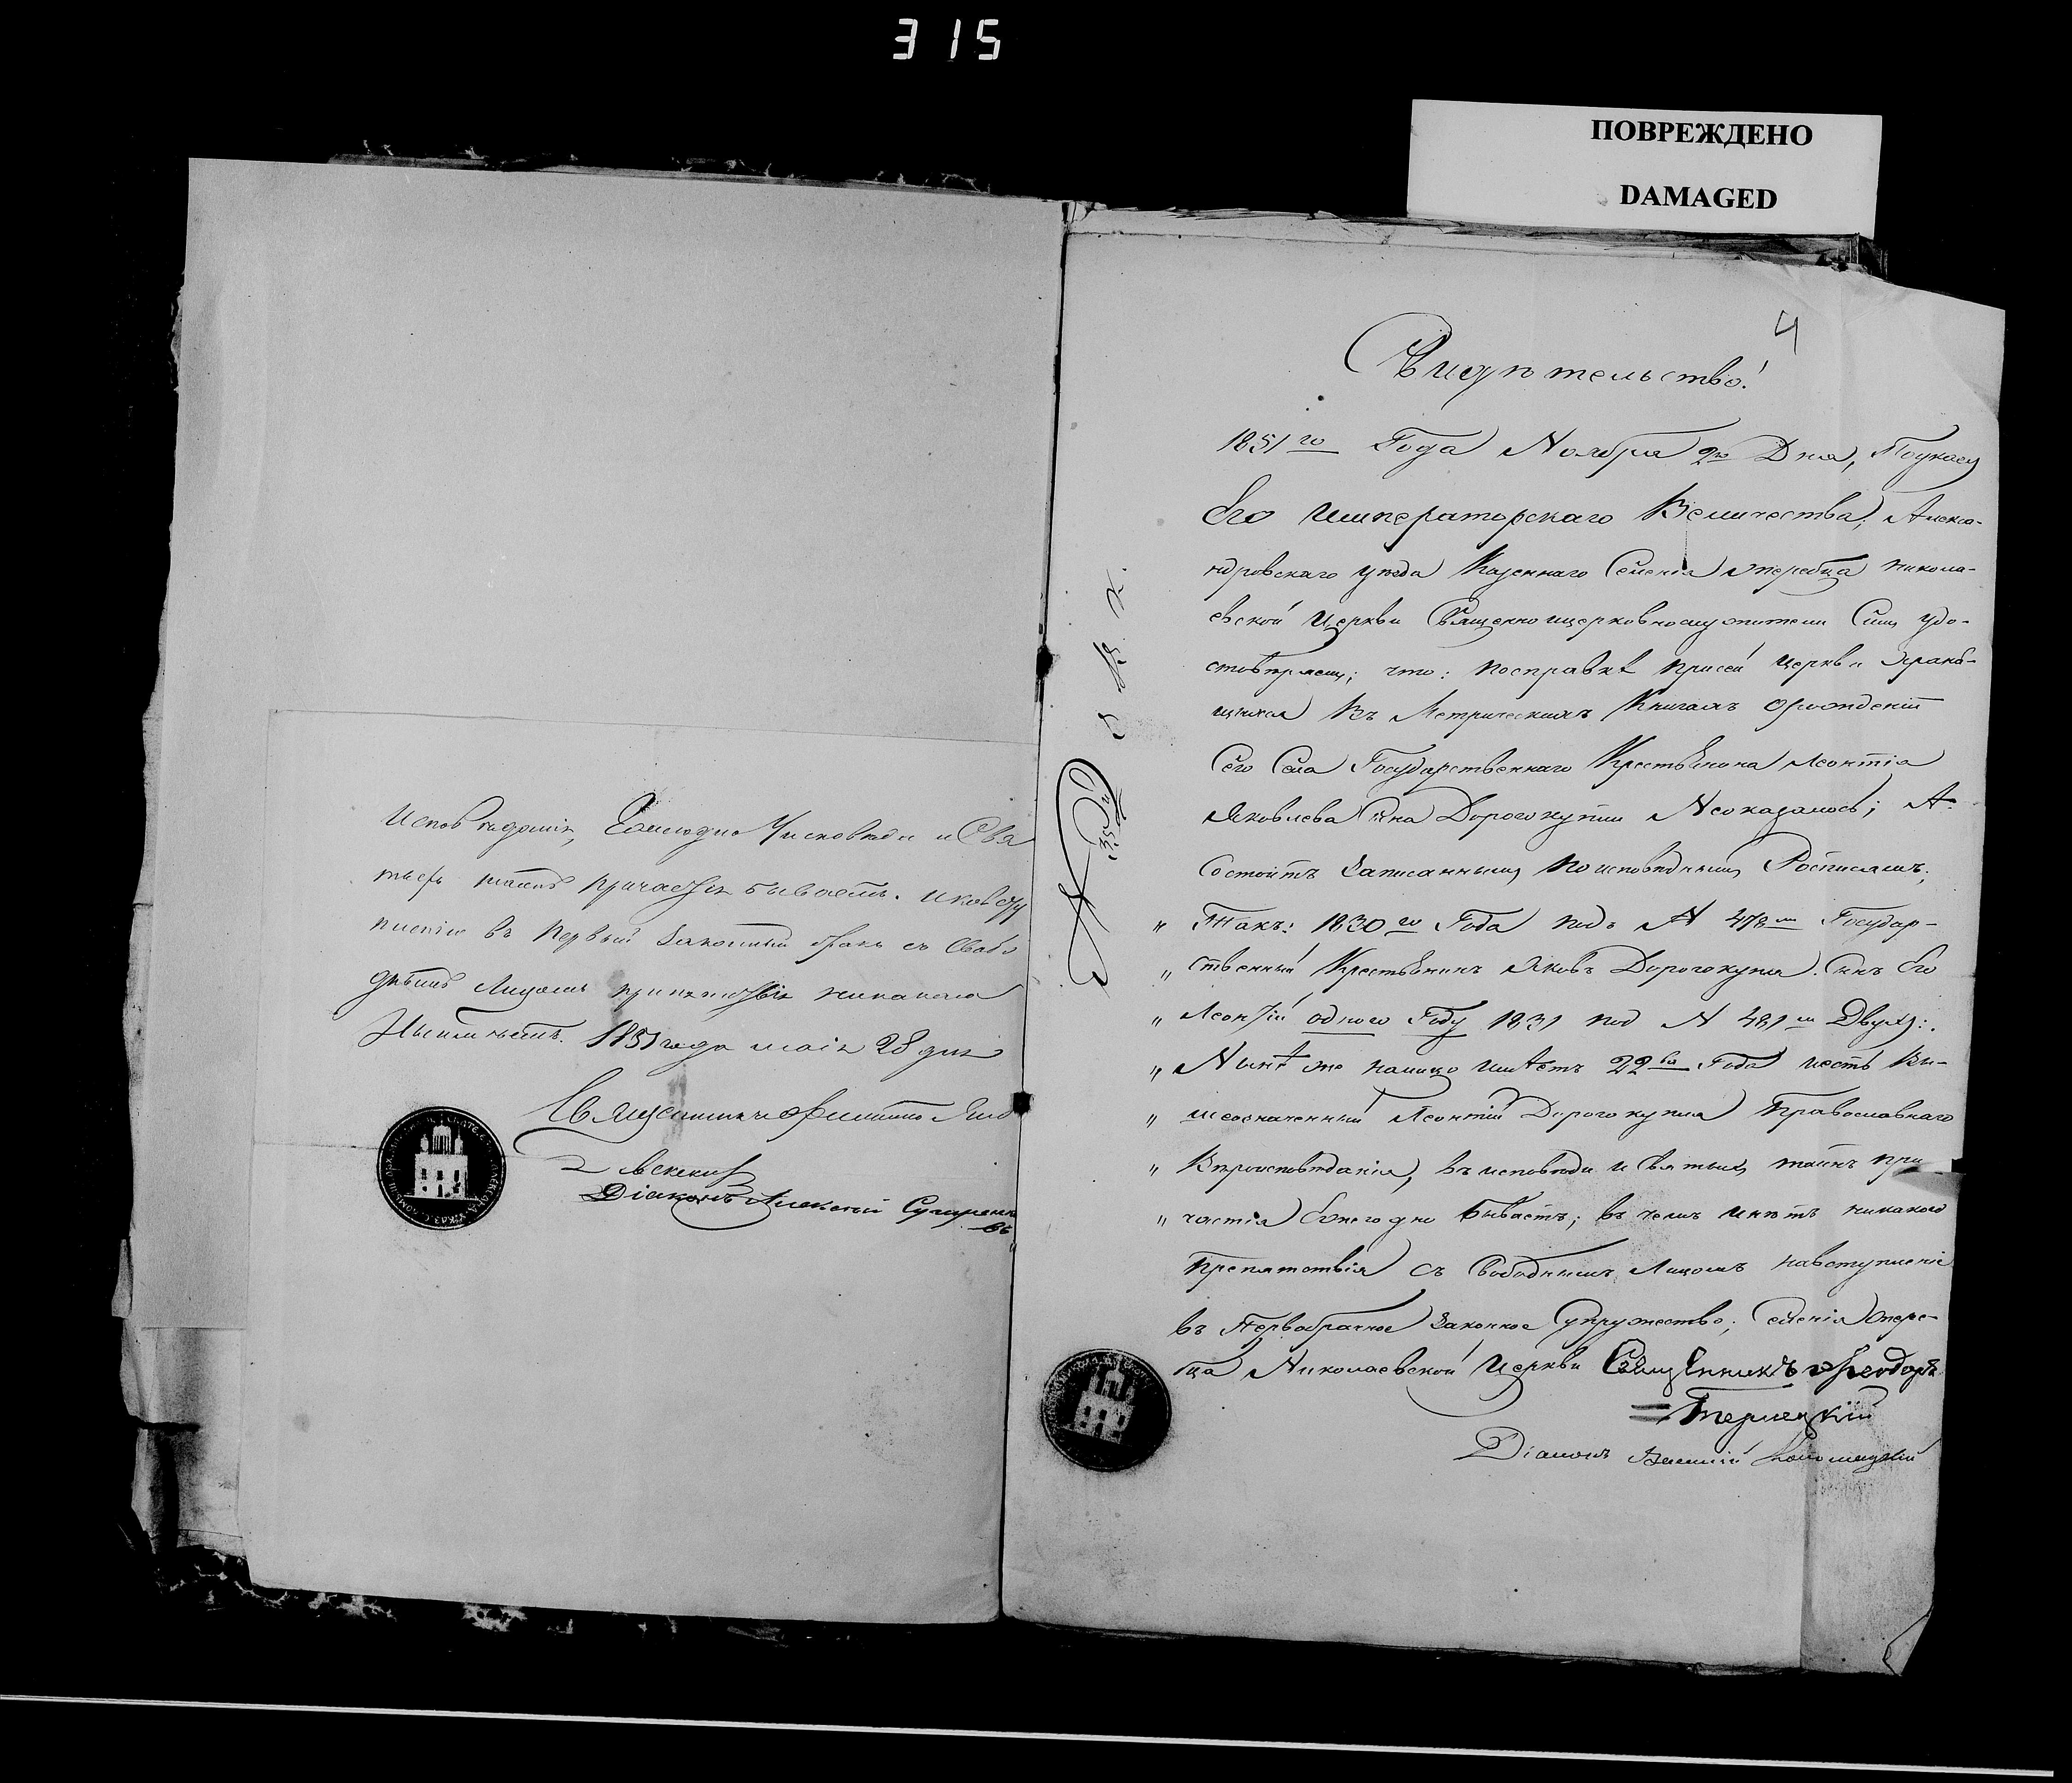 315
ПОВРЕЖДЕНО
DAMAGED
Исповеданія, Ежегодно У исповеди и Свя
тыхъ таинъ причастія бываетъ. и ковсту
пленію въ первый законный бракъ съ Свобо
днымъ Лицомъ препятствія никакого
Неимѣетъ. 1851 года маія 28 дня
Священникъ Филиппъ
Діаконъ Алексій
4
Свидѣтельство!
1851го Года Ноября 2го Дня, Поуказу
Его Императорскаго Величества; Алекса-
ндровскаго уѣзда Казеннаго Селенія Жеребца Никола-
евской Церкви Священноицерковнослужители Симъ удо-
стовѣряемъ; что: посправкѣ присей Церкви Хранѣ-
щихся Въ Метрическихъ Книгахъ Орожденіи
Сего Села Государственнаго Крестьянина Леонтія
Яковлева Сына Дорогокупли Неоказалось; А
Состоитъ Записаннымъ Поисповѣднымъ Росписямъ;
„ Такъ: 1830го Года подъ № 478м Государ-
„ ственный Крестьянинъ Яковъ Дорогокупля. Сынъ Его
„ Леонтій одного Году 1831 под № 481м Двухъ:.
„ Нынѣ же налицо имѣетъ 22ва Года честь Вы-
„ шеозначенный Леонтій Дорогокупля Православнаго
„ Вѣроисповѣданія, въ исповѣди и Святыхъ таинъ при-
„ частія Ежегодно бываетъ; въ чемъ инѣтъ никакого
Препятствія съ Свободнымъ Лицомъ навступленіе
въ Первобрачное Законное Супружество; Селенія Жере-
бца Николаевской Церкви Священникъ Феодоръ
Терлецкій
Діаконъ Василій Коломацкій